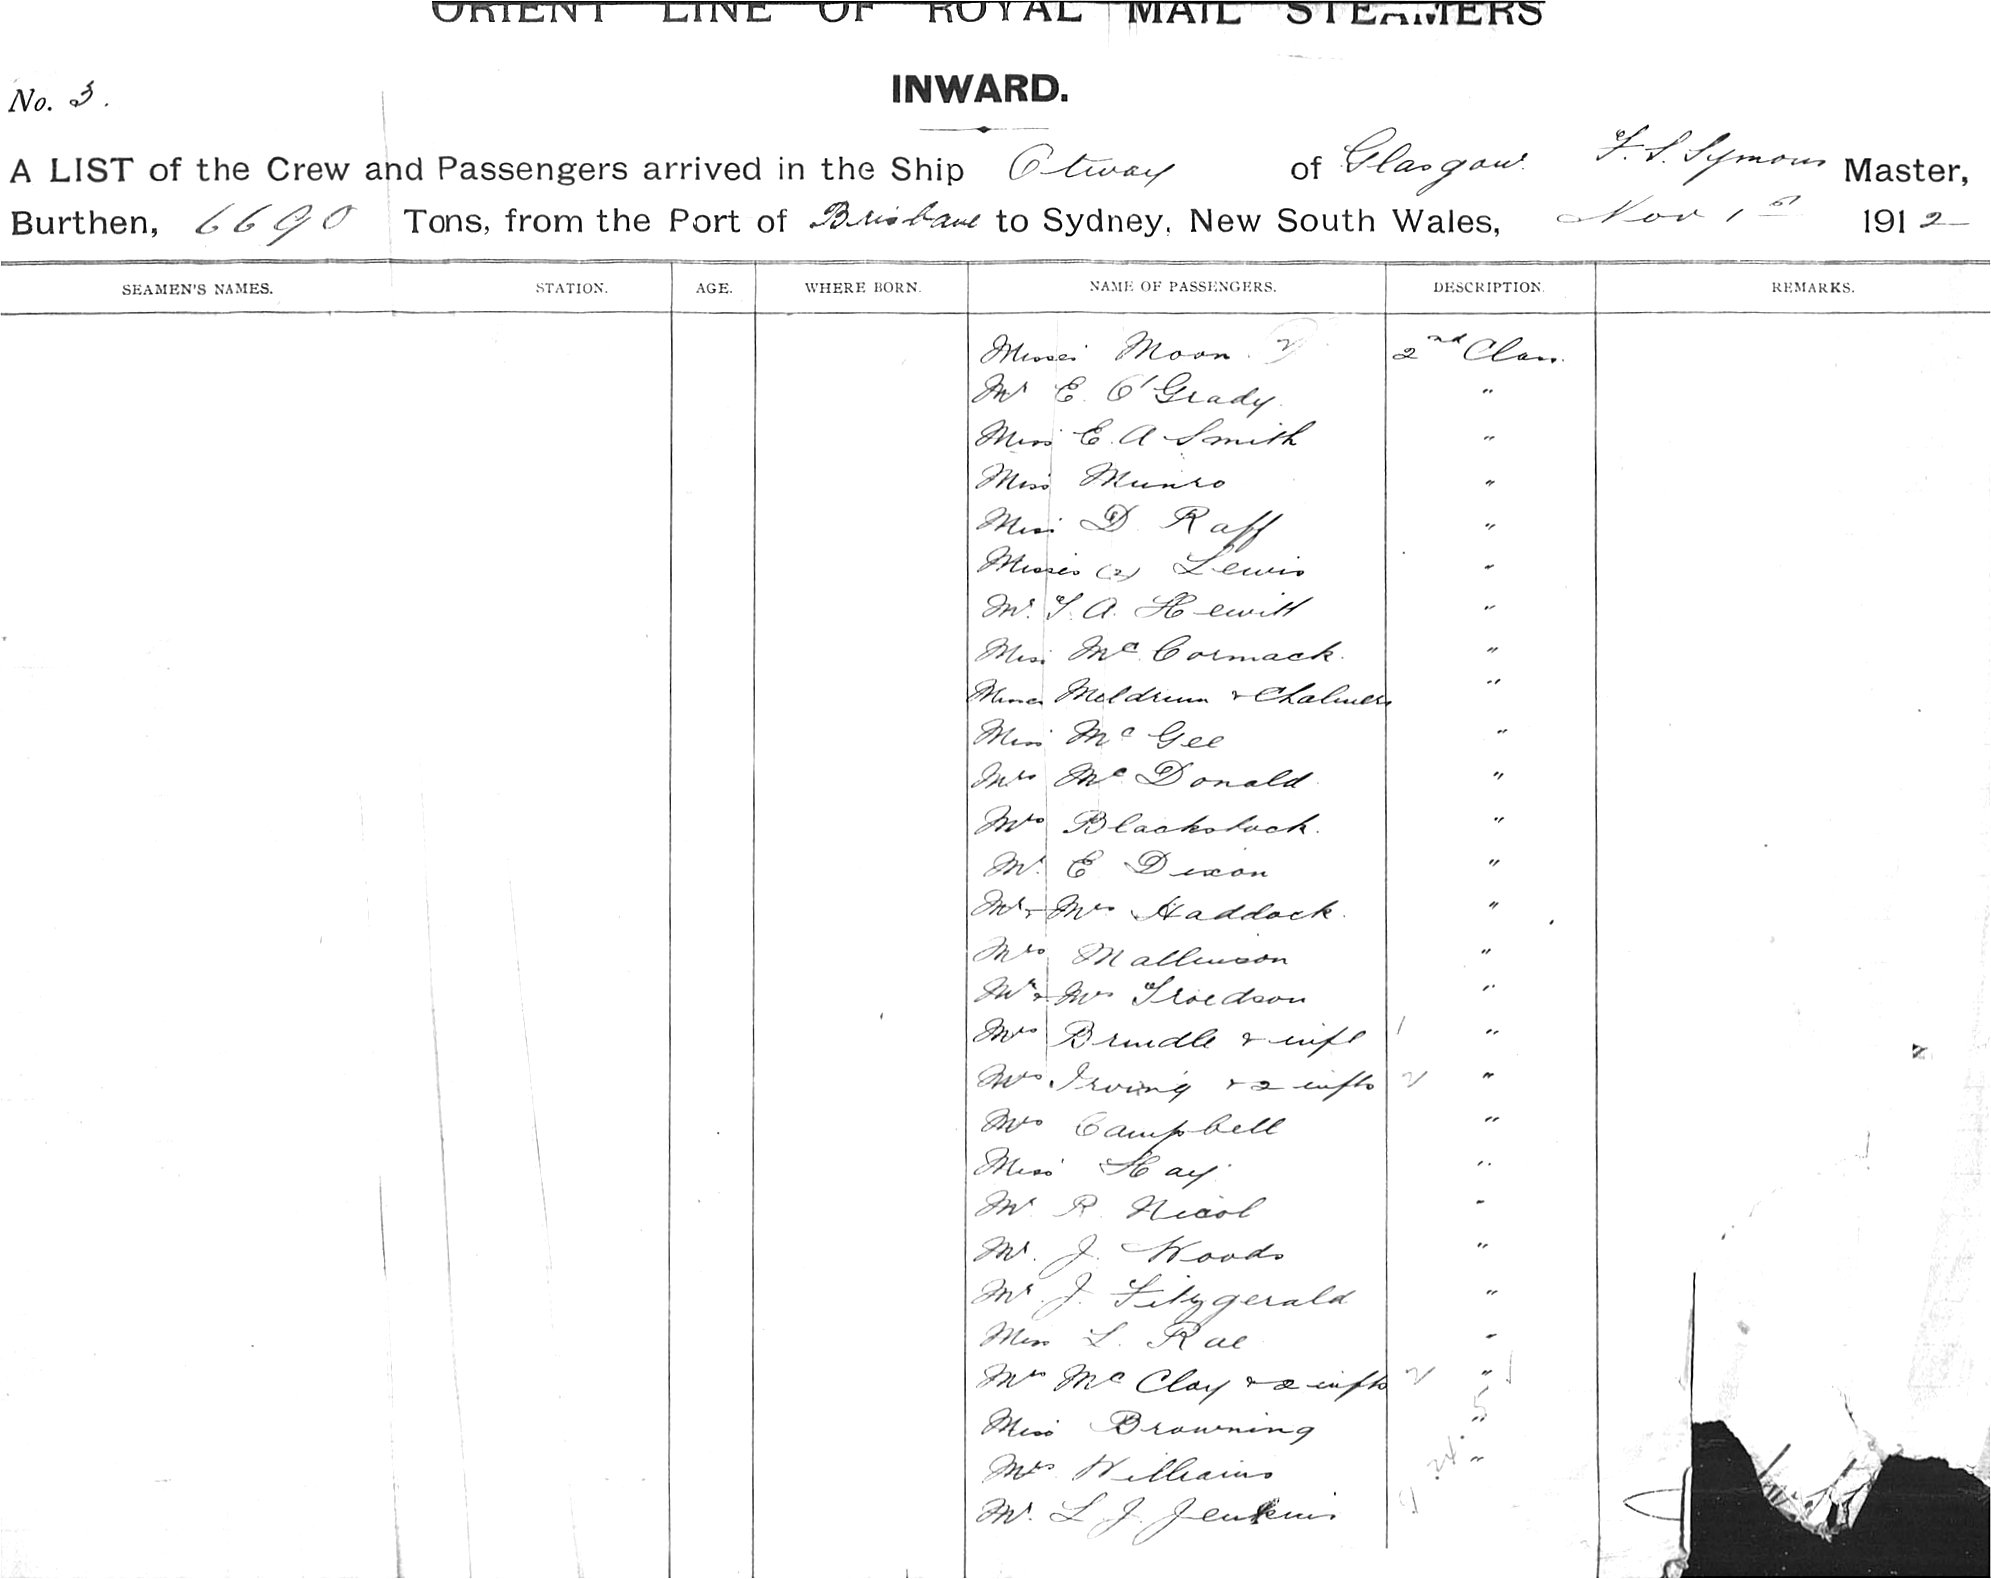 ORIENT LINE OF ROYAL MAIL STEAMERS
INWARD.
No. 3.
A LIST of the Crew and Passengers arrived in the Ship Otway of Glasgow F. S. Symons Master,
Burthen, 6690 Tons, from the Port of Brisbane to Sydney, New South Wales, Nov 1st 1912
SEAMEN'S NAMES. STATION. AGE. WHERE BORN. NAME OF PASSENGERS. DESCRIPTION. REMARKS.
Misses Moon 2 2nd Class.
Mr E. O'Grady. "
Miss E. A Smith "
Miss Munro "
Miss D. Raff "
Misses (2) Lewis "
Mr. T. A. Hewitt "
Miss McCormack. "
Misses Meldrum & Chalmers "
Miss McGee "
Mrs McDonald "
Mrs Blackstock. "
Mr. E Dixon "
Mr & Mrs Haddock. "
Mrs Mallinson "
Mr & Mrs Troedson "
Mrs Brindle & inft 1 "
Mrs Irving & 2 infts 2 "
Mrs Campbell "
Miss Hay "
Mr. R. Nicol "
Mr. J. Woods "
Mr. J. Fitzgerald "
Miss L. Rae "
Mrs McClay & 2 infts 2 "
Miss Browning "
Mrs Williams "
Mr. L J Jenkins